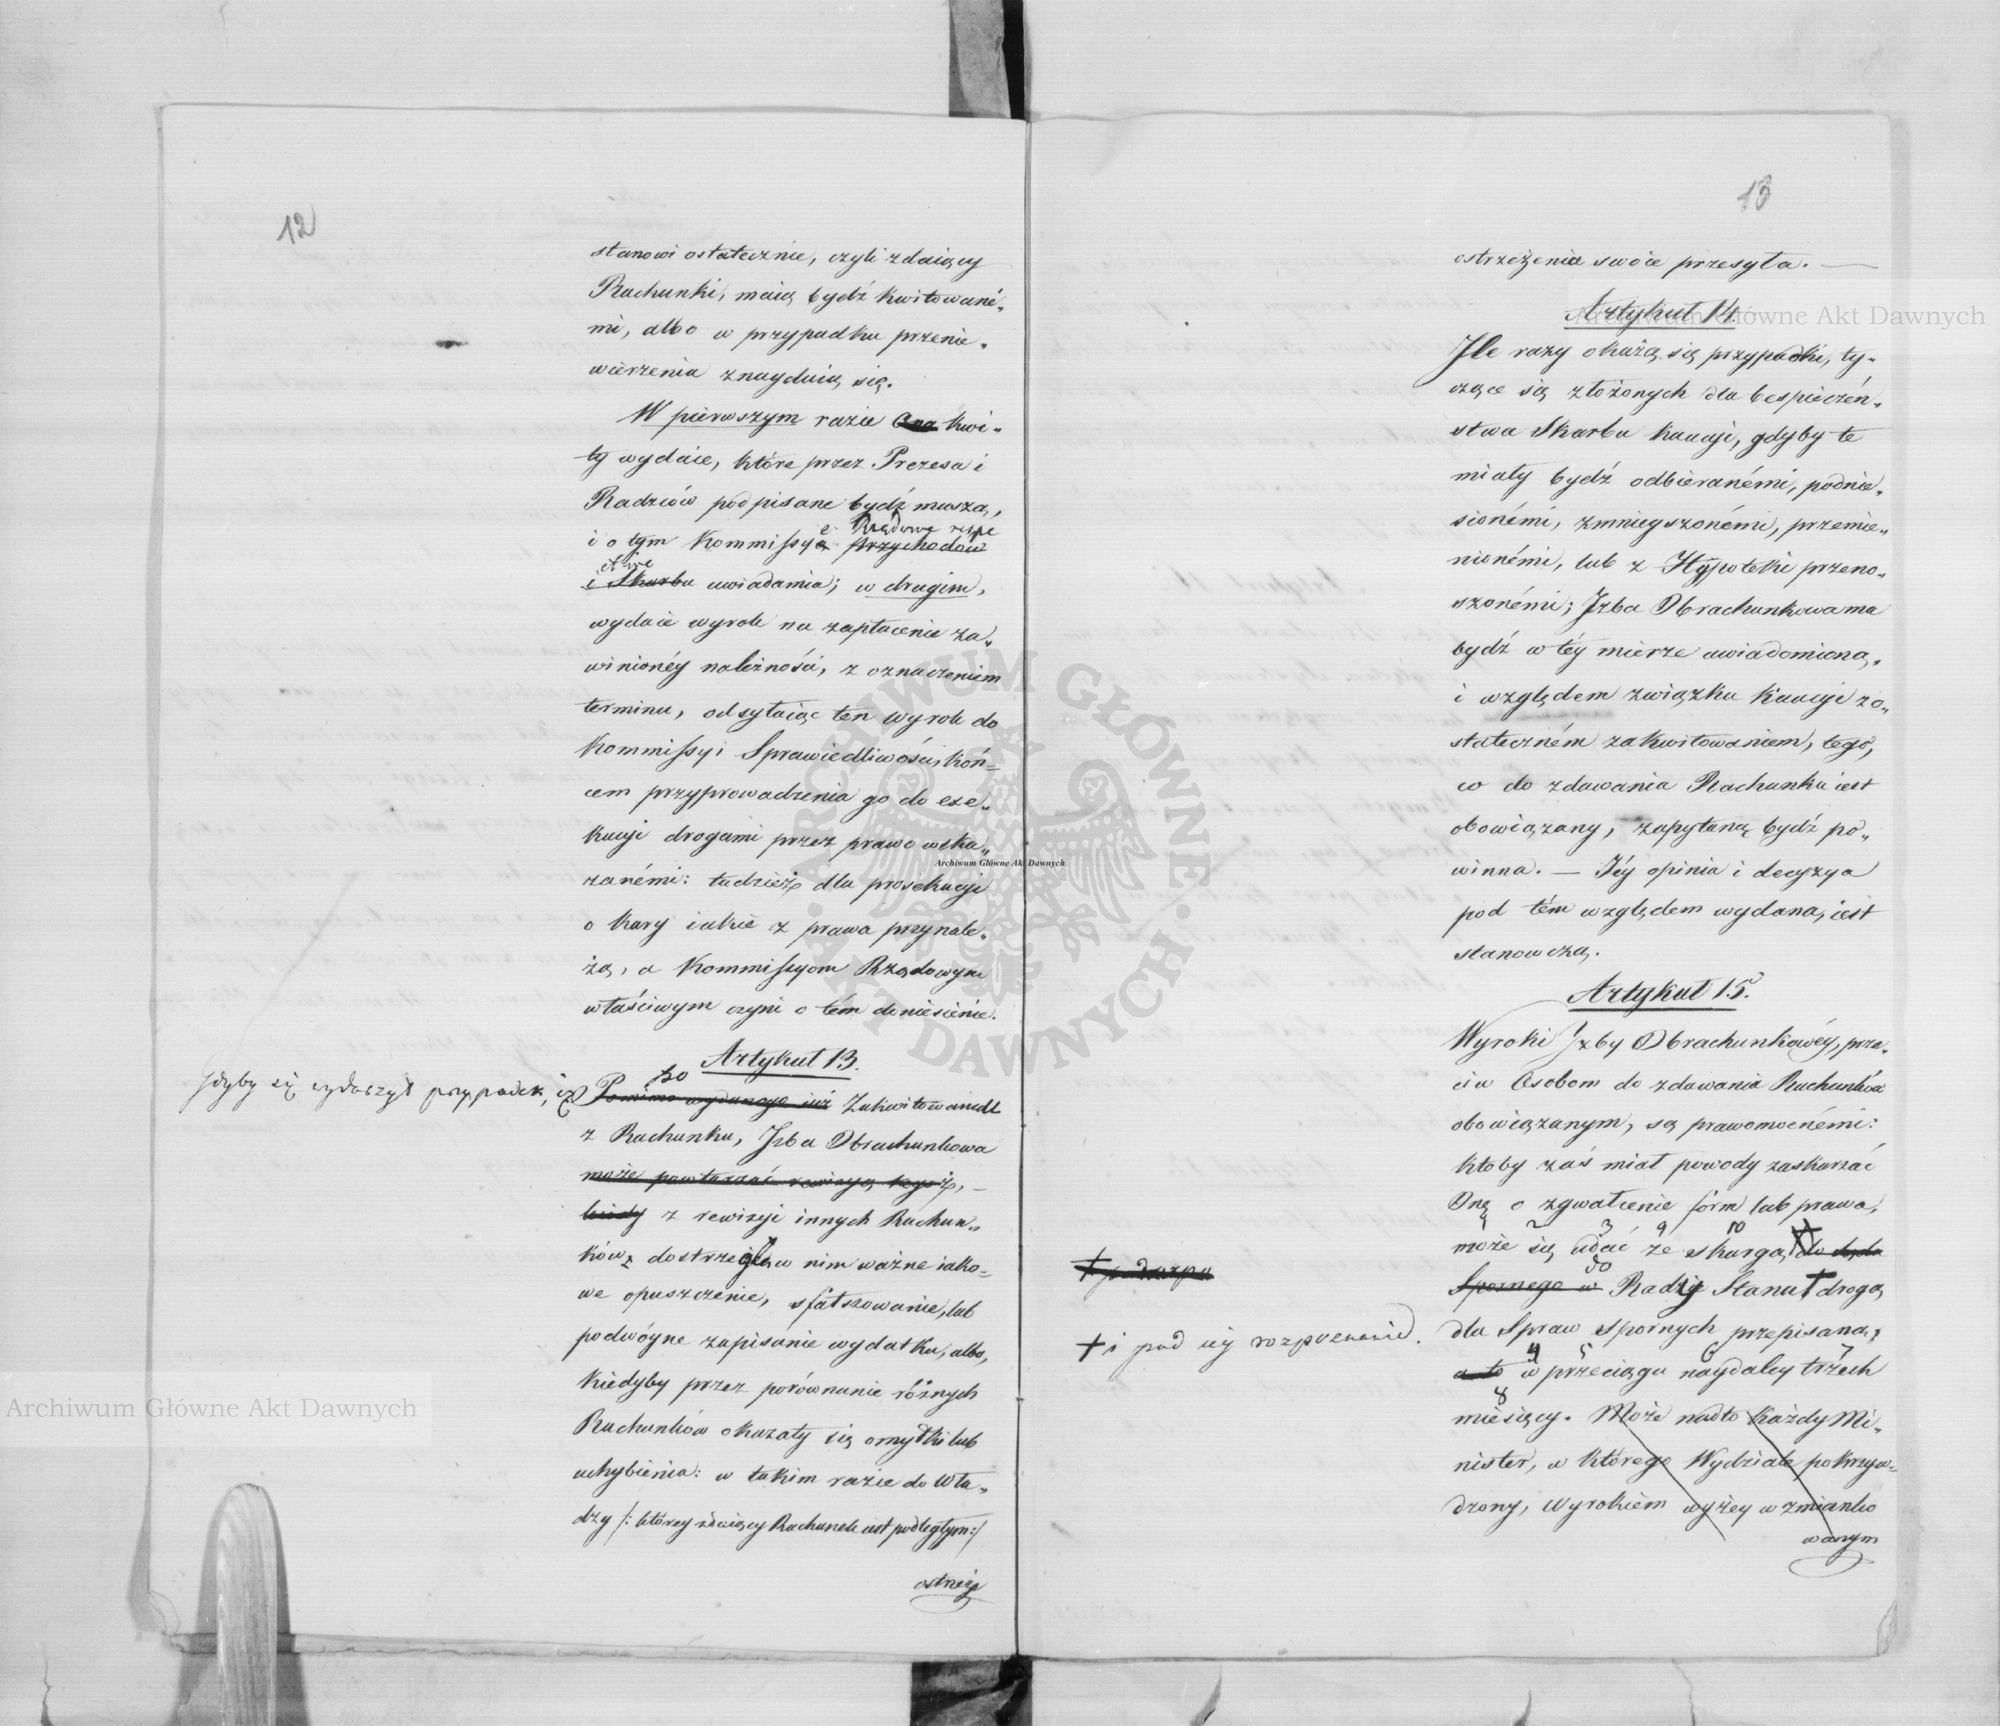 12
stanowi ostatecznie, czyli zdaiący
Rachunki, maią bydź kwitowané„
mi, albo w przypadku przenie„
wierzenia znayduią się.
W pierwszym razie Ona kwi„
ty wydaie, które przez Prezesa i
Radzców podpisane bydź muszą,
e Rządowe respe
i o tym Kommissyą przychodów
ctive
i Skarbu uwiadamia; w drugim,
wydaie wyrok na zapłacenie za„
winionéy należności, z oznaczeniem
terminu, odsyłaiąc ten wyrok do
Kommissyi Sprawiedliwości, koń„
cem przyprowadzenia go do exe„
kucyi drogami przez prawo wska„
zanémi: tudzież dla prosekucyi
o kary iakie z prawa przynale„
żą, a Kommissyom Rządowym
właściwym czyni o tém doniesienie.
Artykuł 13.
Gdyby się wydarzył przypadek, iż
po
Pomimo wydanego iuż Zakwitowaniu
z Rachunku, Izba Obrachunkowa
może powtarzać rewizyą tegoż,
kiedy z rewizyi innych Rachun„
ków, dostrzegła w nim ważne iako„
we opuszczenie, sfałszowanie, lub
podwóyne zapisanie wydatku, albo,
kiedyby przez porównanie różnych
Rachunków okazały się omyłki lub
uchybienia: w takim razie do Wła„
dzy /: którey zdaiący Rachunek iest podległym :/
ostrzeże
13
ostrzeżenia swóie przesyła. —
Artykuł 14.
Ile razy okażą się przypadki, ty„
czące się złożonych dla bespieczéń„
stwa Skarbu kaucyi, gdyby te
miały bydź odbieranémi, podnie„
sionémi, zmnieyszonémi, przemie„
nionémi, lub z Hypoteki przeno„
szonémi; Izba Obrachunkowa ma
bydź w téy mierze uwiadomioną,
i względem związku kaucyi z o„
stateczném zakwitowaniem, tego,
co do zdawania Rachunku iest
obowiązany, zapytaną bydź po„
winna. — Iéy opinia i decyzya
pod tém względem wydana, iest
stanowczą.
Artykuł 15.
Wyroki Izby Obrachunkowéy, prze„
ciw Osobom do zdawania Rachunków
obowiązanym, są prawomocnémi:
ktoby zaś miał powody zaskarżać
One o zgwałcenie form lub prawa,
1 2 3 9 10
może się udać ze skargą, do Sądu
do
Spornego w Radzy Stanu † drogą
† i pod iéy rozpoznanie.
dla Spraw spornych przepisaną,
4 5 6 7
a to w przeciągu naydaley trzech
8
miesięcy. Może nadto każdy Mi„
nister, w którego Wydziale pokrzyw„
dzony, Wyrokiem wyżey wzmianko
wanym
Archiwum Główne Akt Dawnych
Archiwum Główne Akt Dawnych
Archiwum Główne Akt Dawnych
ARCHIWUM GŁÓWNE · AKT DAWNYCH ·